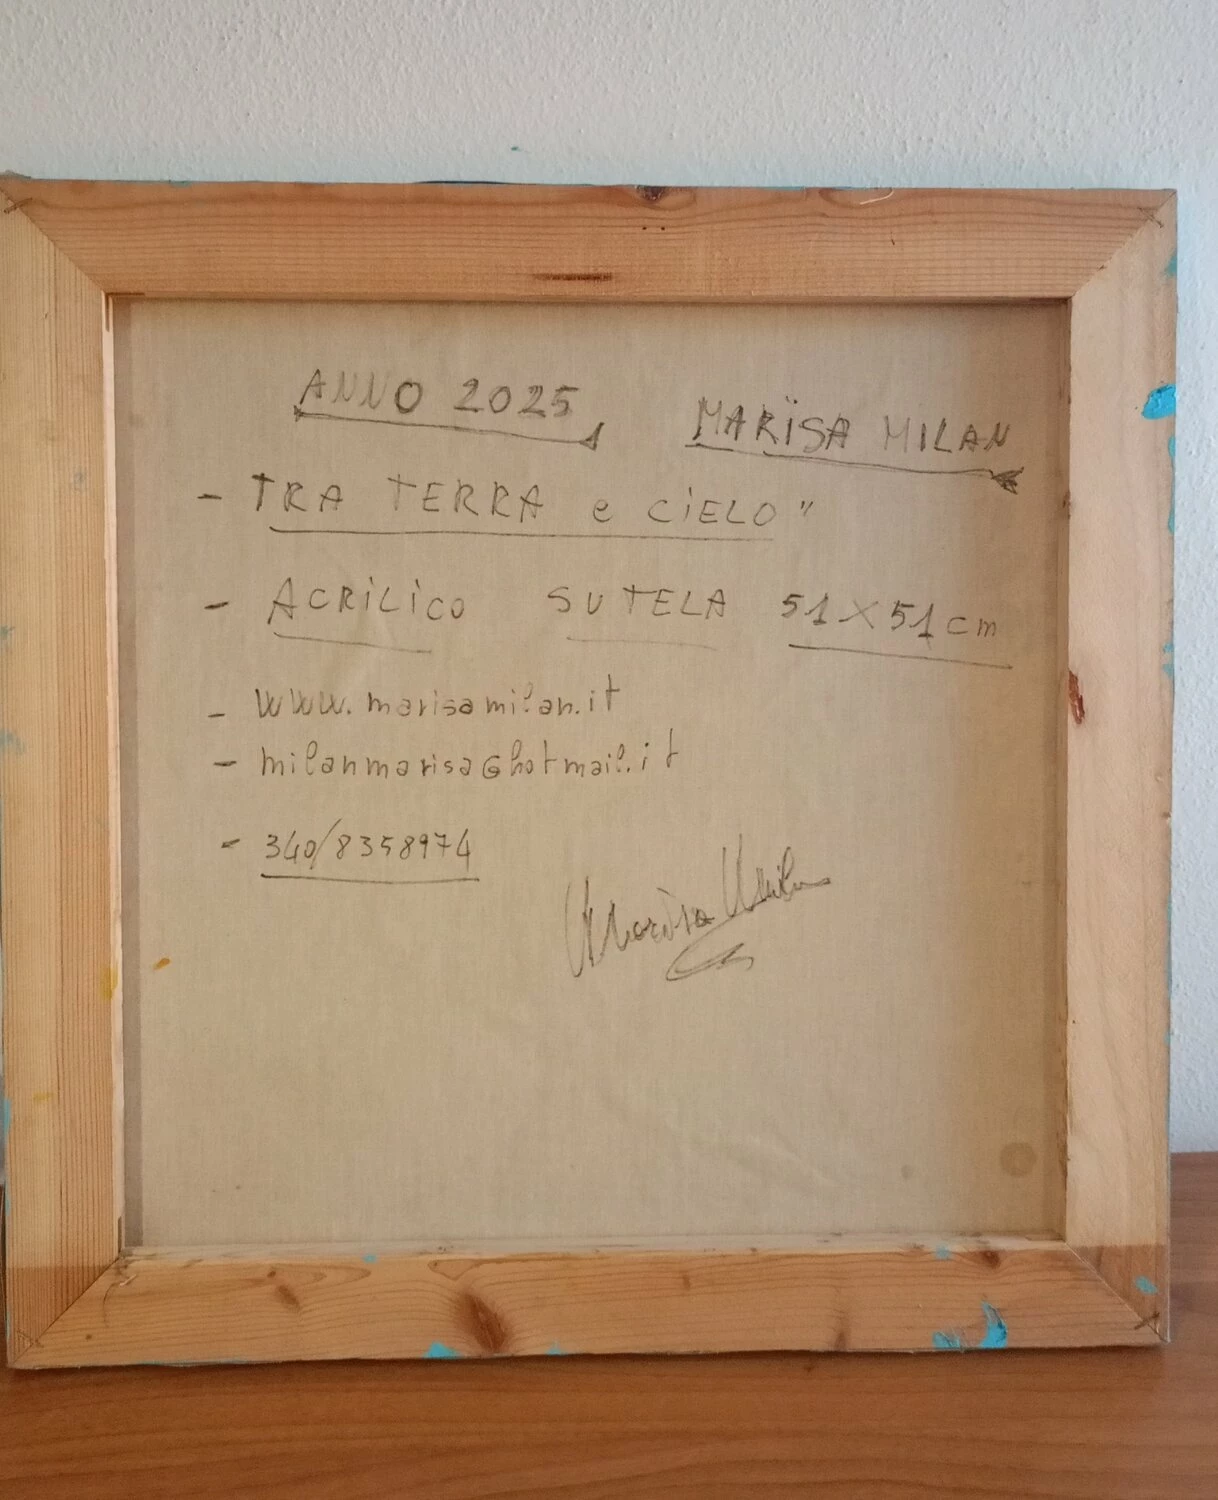 ANNO 2025 MARISA MILAN
- TRA TERRA e CiELO"
- ACRiLiCO SU TELA 51X51cm
- www.marisamilan.it
- milanmarisa@hotmail.it
- 340/8358974
Marisa Milan